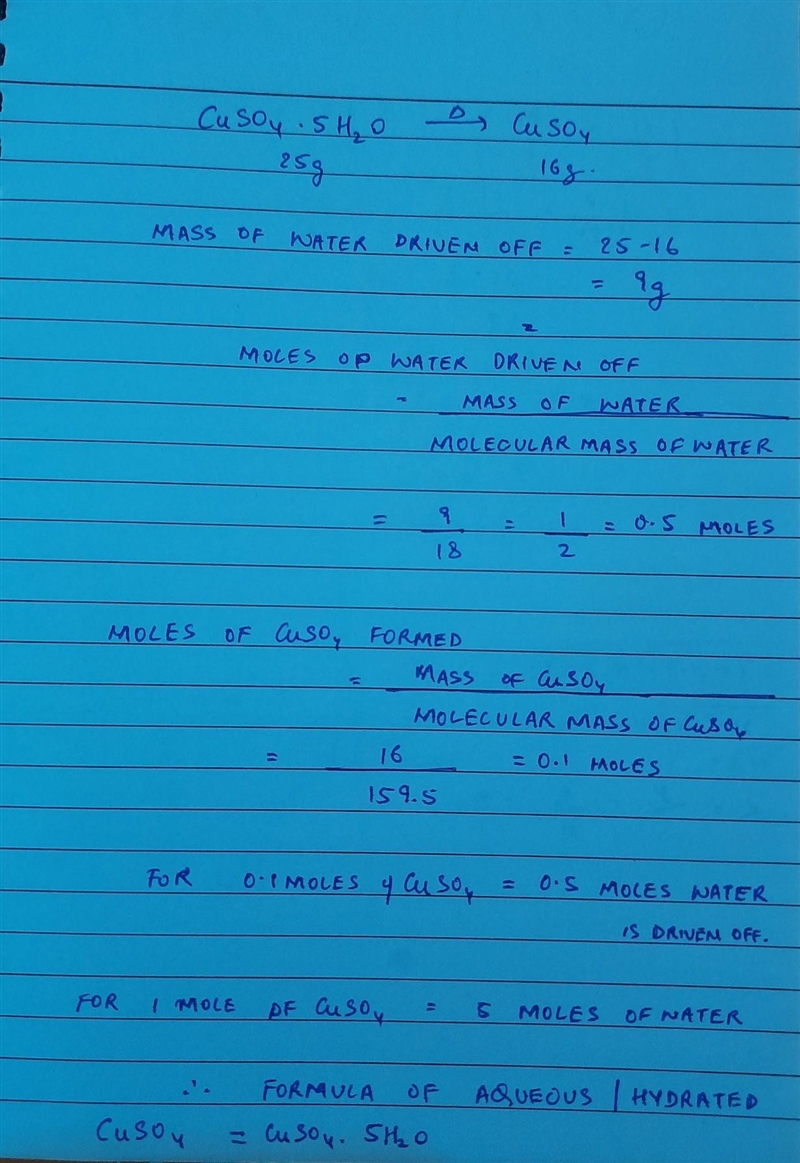 CuSO4 . 5H2O —Δ→ CuSO4
25g 16g.
MASS OF WATER DRIVEN OFF = 25-16
= 9g
=
MOLES OF WATER DRIVEN OFF
= MASS OF WATER
MOLECULAR MASS OF WATER
= 9 = 1 = 0.5 MOLES
18 2
MOLES OF CuSO4 FORMED
= MASS OF CuSO4
MOLECULAR MASS OF CuSO4
= 16 = 0.1 MOLES
159.5
FOR 0.1 MOLES of CuSO4 = 0.5 MOLES WATER
IS DRIVEN OFF.
FOR 1 MOLE OF CuSO4 = 5 MOLES OF WATER
∴ FORMULA OF AQUEOUS / HYDRATED
CuSO4 = CuSO4. 5H2O